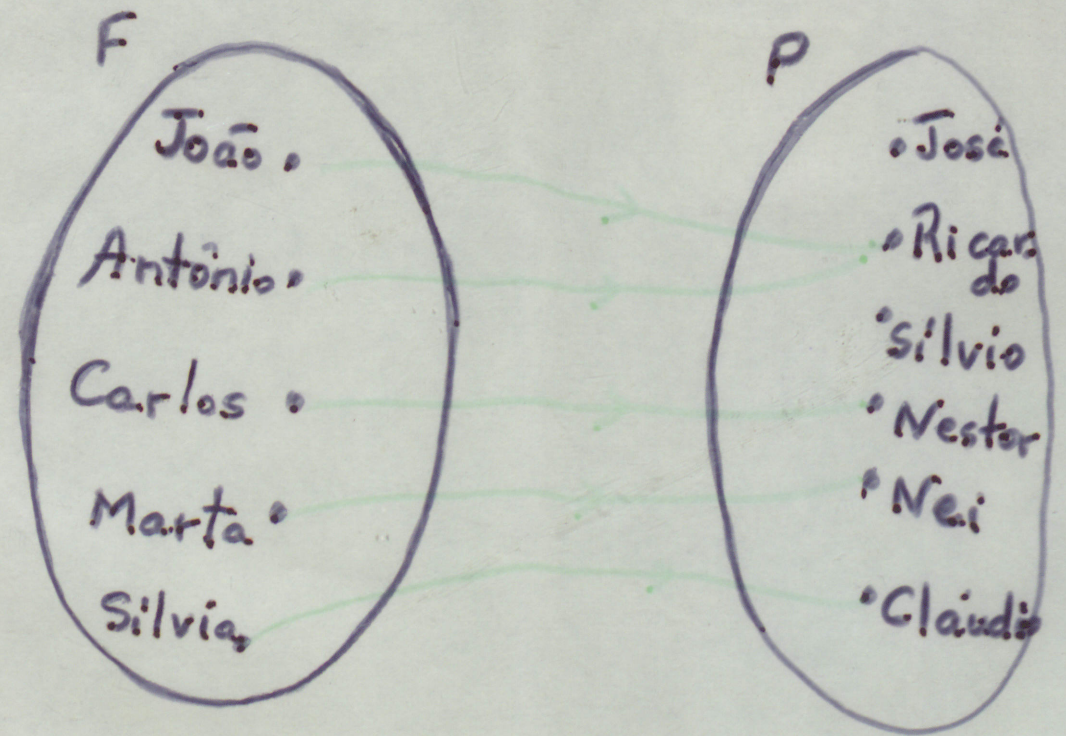 F
João
Antônio
Carlos
Marta
Silvia
P
José
Ricar
do
Sílvio
Nestor
Nei
Cláudio